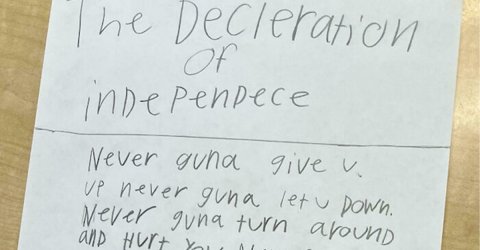 The Decleration
of
independece
Never guna give u.
up never guna let u Down.
Never guna turn around
and Hurt you